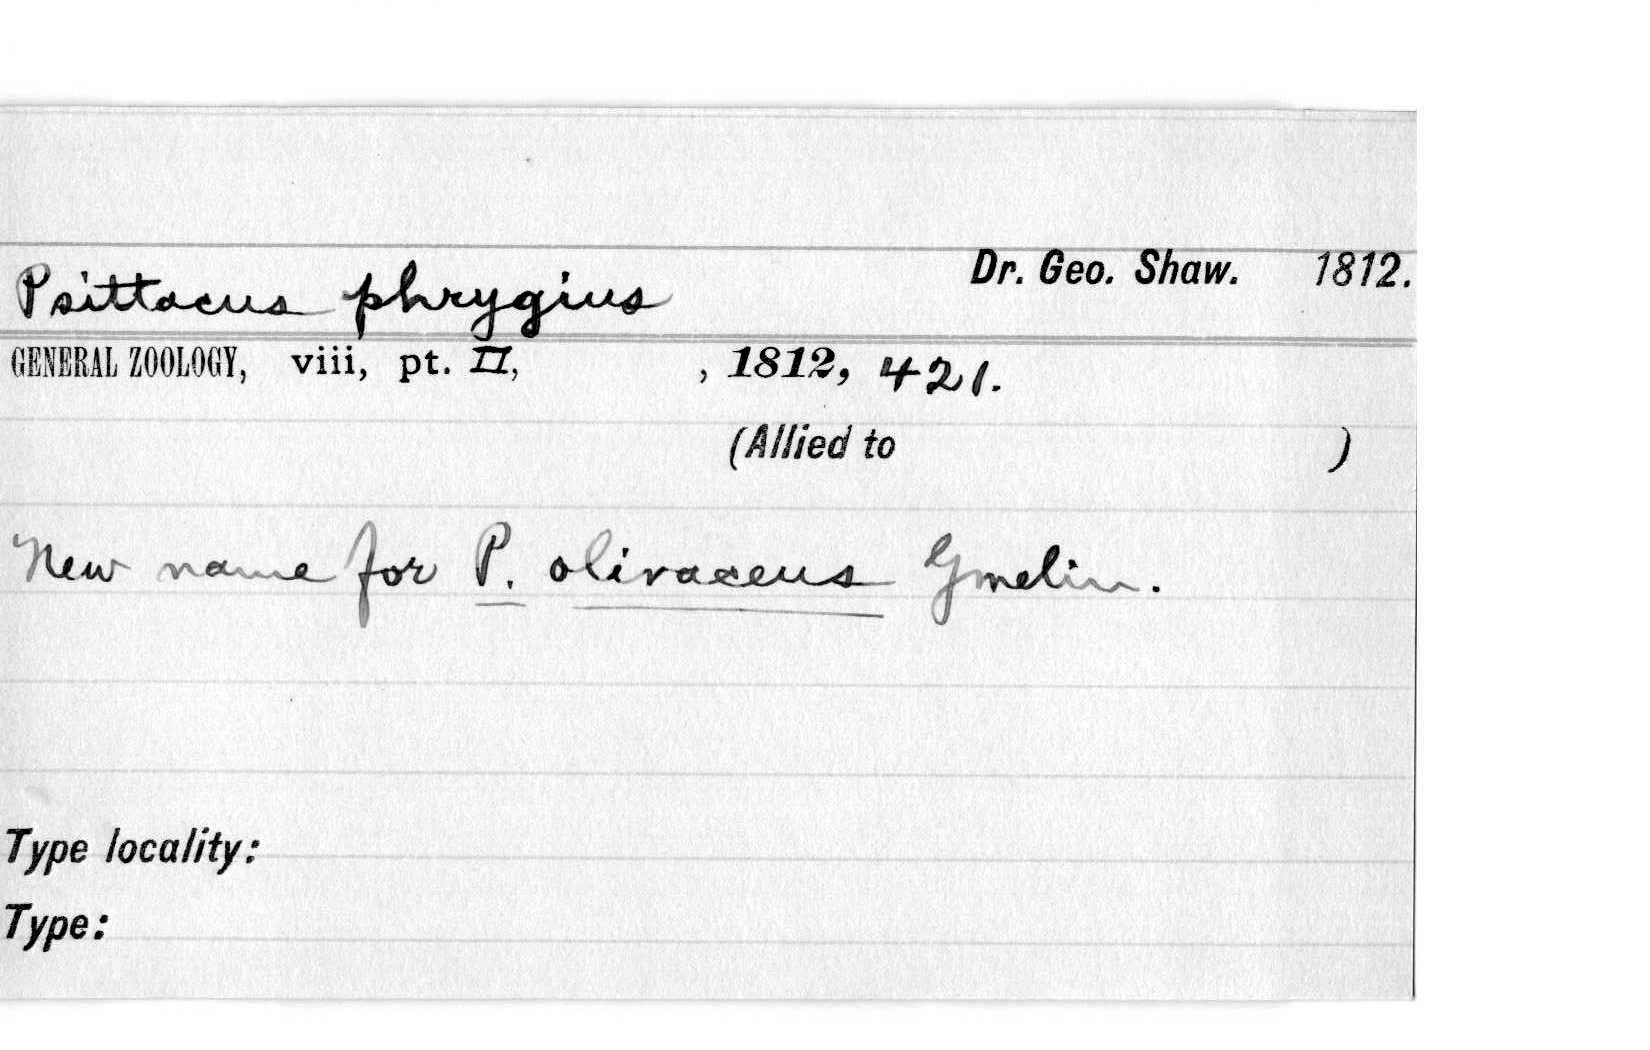 Psittacus phrygius Dr. Geo. Shaw. 1812.
GENERAL ZOOLOGY, viii, pt. II, , 1812, 421.
(Allied to )
New name for P. olivaceus Gmelin.
Type locality:
Type: